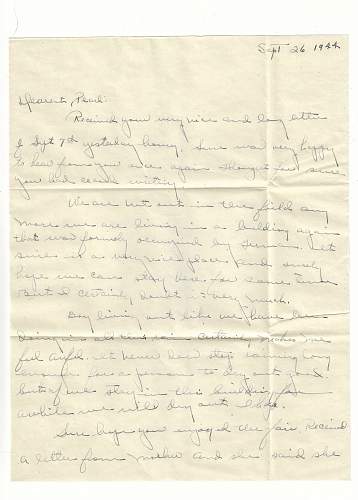 Sept 26 1944
Dearest Pearl:
Received your very nice and long letter
of Sept 7th yesterday honey. Sure was very happy
to hear from you once again. Thought for sure
you had ceased writing.
We are not out in the field any
more we are living in a building again
that was formerly occupied by Germans. It
sure is a very nice place, and surely
hope we can stay here for some time
But I certainly doubt it very much.
Boy living out like we have been
doing in all this rain certainly makes me
feel awful. It never has stop raining long
enough for a person to dry out good.
but if we stay in this building for
awhile we will dry out I hope.
Sure hope you enjoyed the fair. Received
a letter from mother and she said she